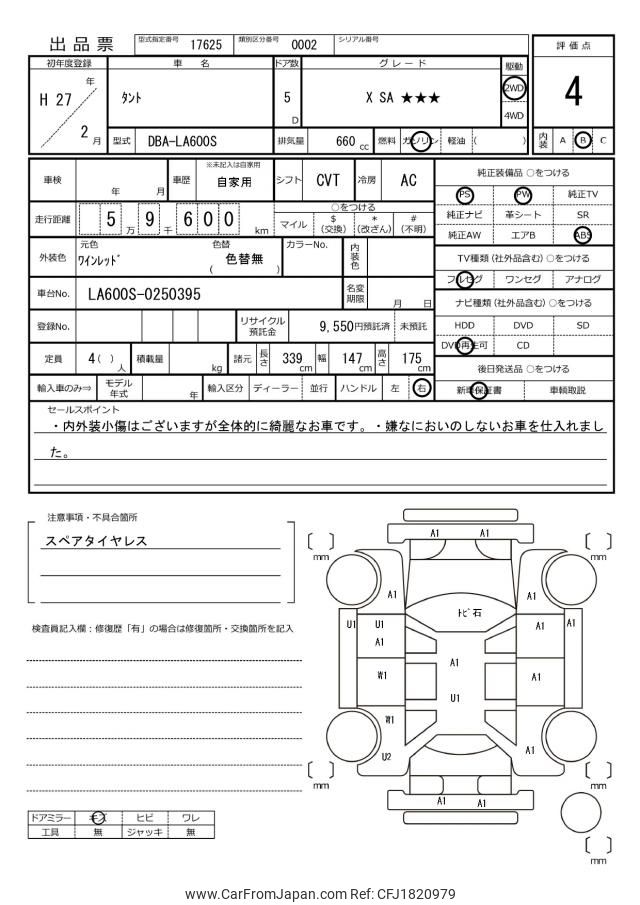 出品票 型式指定番号 17625 類別区分番号 0002 シリアル番号
評価点
初年度登録 車名 ドア数 グレード 駆動
H 27 年 ﾀﾝﾄ 5 D X SA ★★★ 2WD 4WD
4
2 月 型式 DBA-LA600S 排気量 660 cc 燃料 ガソリン 軽油 ( ) 内装 A B C
車検 年 月 車歴 ※未記入は自家用 自家用 シフト CVT 冷房 AC
走行距離 5 万 9 千 6 0 0 km ○をつける
マイル $ (交換) * (改ざん) # (不明)
外装色 元色 ﾜｲﾝﾚｯﾄﾞ 色替 ( 色替無 ) カラーNo. 内装色
車台No. LA600S-0250395 名変期限 月 日
登録No. リサイクル預託金 9,550円預託済 未預託
定員 4 ( ) 人 積載量 kg 諸元 長さ 339 cm 幅 147 cm 高さ 175 cm
輸入車のみ⇒ モデル年式 年 輸入区分 ディーラー 並行 ハンドル 左 右
純正装備品 ○をつける
PS PW 純正TV
純正ナビ 革シート SR
純正AW エアB ABS
TV種類 (社外品含む) ○をつける
フルセグ ワンセグ アナログ
ナビ種類 (社外品含む) ○をつける
HDD DVD SD
DVD再生可 CD
後日発送品 ○をつける
新車保証書 車輌取説
セールスポイント
・内外装小傷はございますが全体的に綺麗なお車です。・嫌なにおいのしないお車を仕入れまし
た。
注意事項・不具合箇所
スペアタイヤレス
検査員記入欄：修復歴「有」の場合は修復箇所・交換箇所を記入
ドアミラー キズ ヒビ ワレ
工具 無 ジャッキ 無
A1 A1
mm mm
A1 A1
ﾄﾋﾞ石
U1 U1 A1 A1
A1
A1
W1 A1
U1
W1
U2 A1
mm mm
A1 A1
mm
www.CarFromJapan.com Ref: CFJ1820979